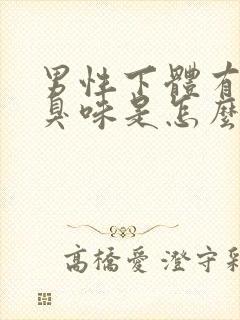 男性下體有
臭味是怎麼
高橋愛 澄守彩